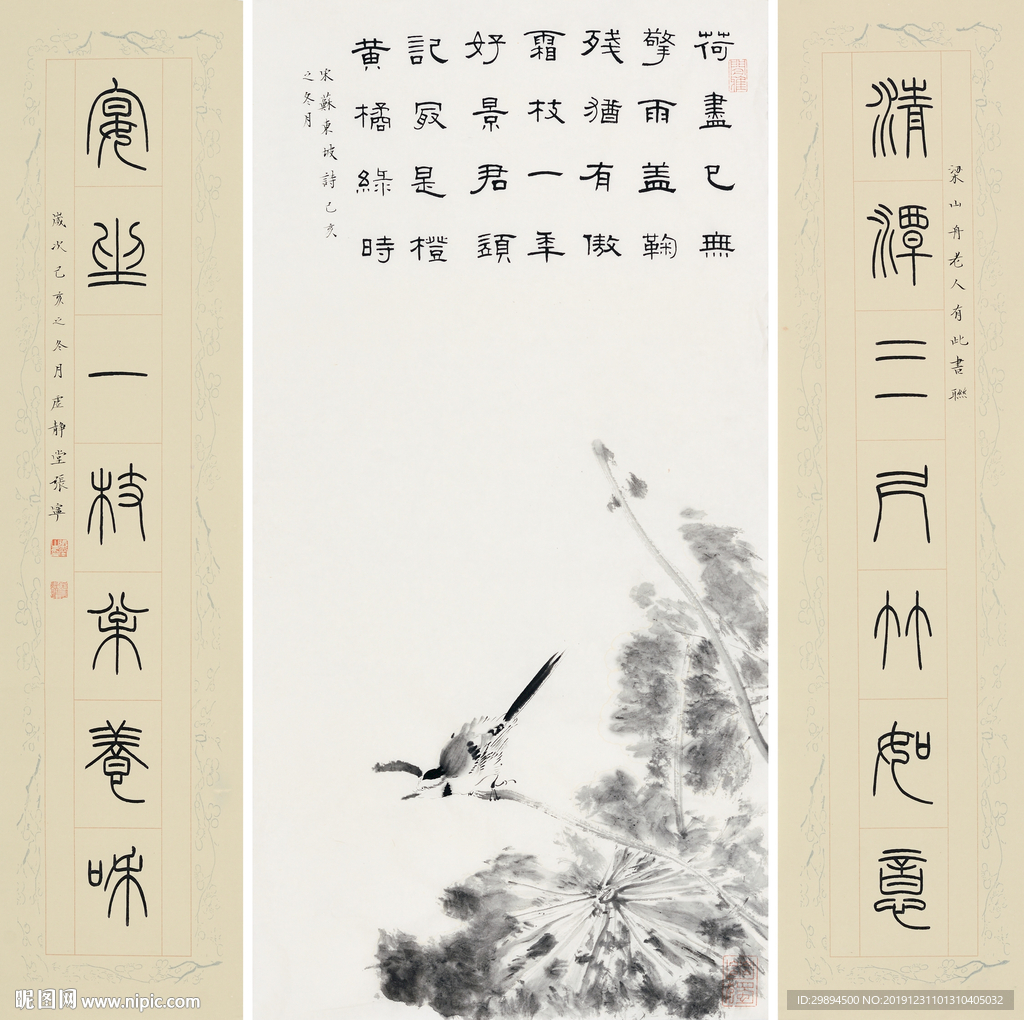 清潭三尺竹如意
梁山舟老人有此書聯
荷盡已無
擎雨盖鞠
残猶有傲
霜枝一年
好景君須
記冣是橙
黄橘綠時
宋蘇東坡詩己亥
之冬月
宴坐一枝松養和
歲次己亥之冬月虛静堂張寧
昵图网 www.nipic.com
ID:29894500 NO:20191231101310405032